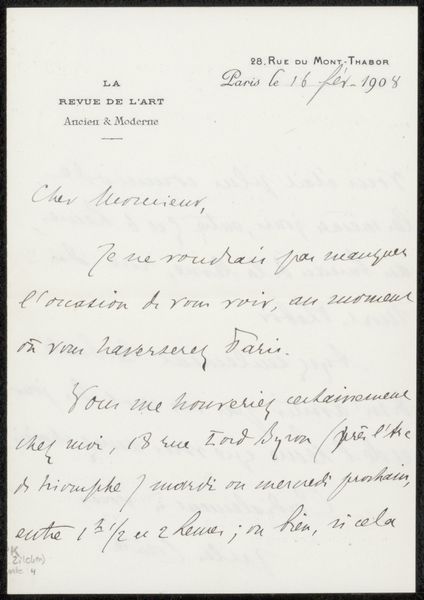 LA
REVUE DE L'ART
Ancien & Moderne
28, RUE DU MONT-THABOR
Paris le 16 fév. 1908
Cher Monsieur,
Je ne voudrais pas manquer
l'occasion de vous voir, au moment
où vous traverserez Paris.
Vous me trouveriez certainement
chez moi, 18 rue Lord Byron (près l'Arc
de triomphe) mardi ou mercredi prochain,
entre 1h 1/2 et 2 heures ; ou bien, si cela